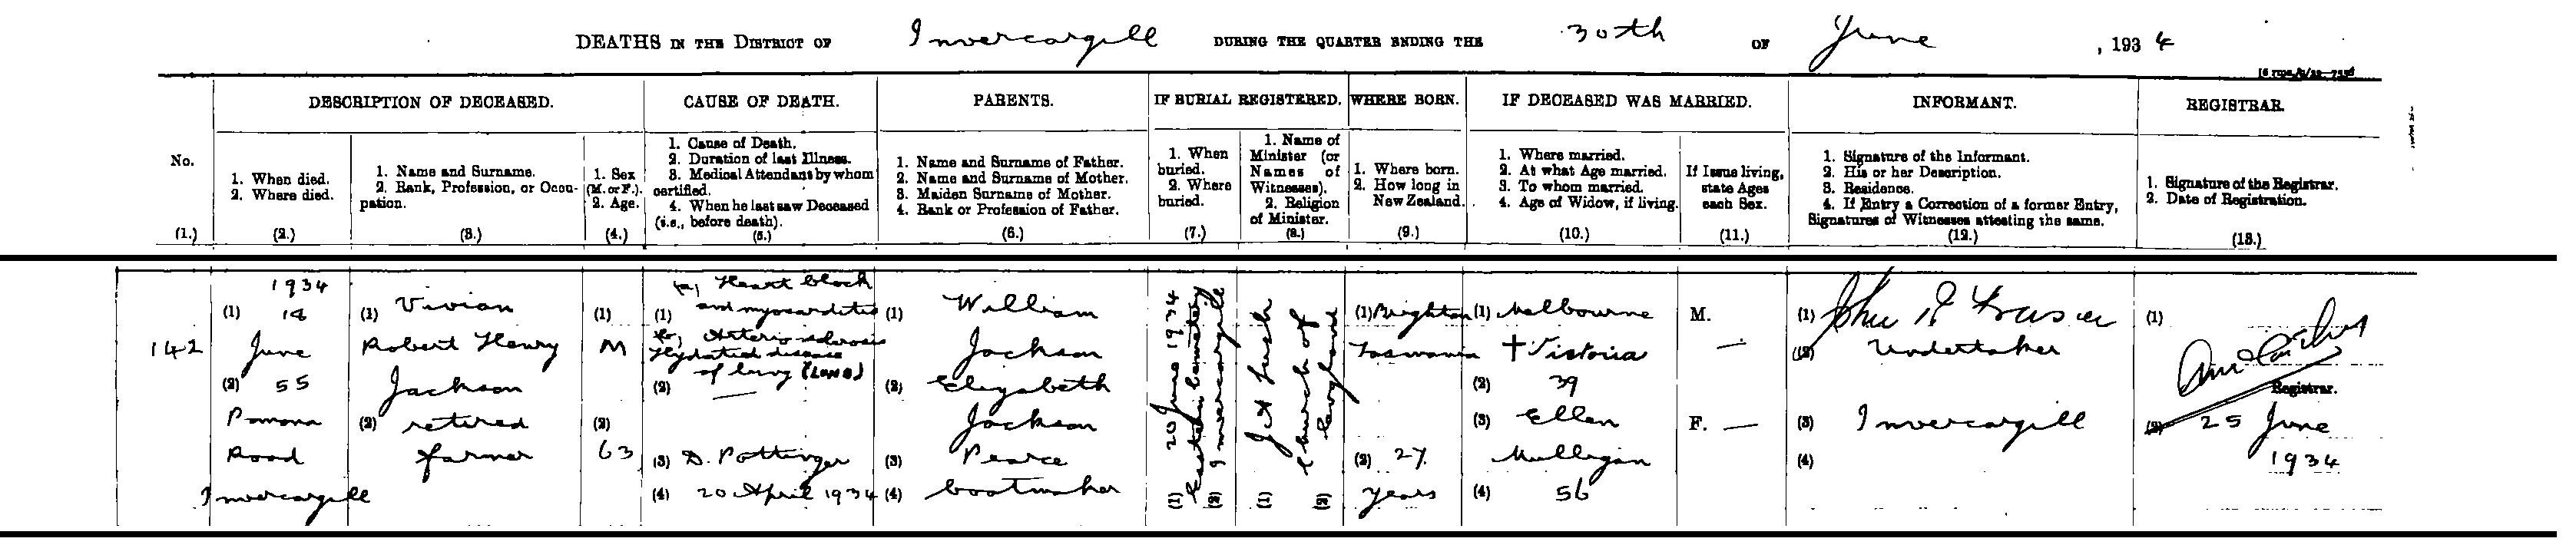 DEATHS IN THE DISTRICT OF Invercargill DURING THE QUARTER ENDING THE 30th OF June, 1934
DESCRIPTION OF DECEASED.
CAUSE OF DEATH.
PARENTS.
IF BURIAL REGISTERED.
WHERE BORN.
IF DECEASED WAS MARRIED.
INFORMANT.
REGISTRAR.
No.
(1.)
1. When died.
2. Where died.
(2.)
1. Name and Surname.
2. Rank, Profession, or Occu-
pation.
(3.)
1. Sex
(M. or F.).
2. Age.
(4.)
1. Cause of Death.
2. Duration of last Illness.
3. Medical Attendant by whom
certified.
4. When he last saw Deceased
(i.e., before death).
(5.)
1. Name and Surname of Father.
2. Name and Surname of Mother.
3. Maiden Surname of Mother.
4. Rank or Profession of Father.
(6.)
1. When
buried.
2. Where
buried.
(7.)
1. Name of
Minister (or
Names of
Witnesses).
2. Religion
of Minister.
(8.)
1. Where born.
2. How long in
New Zealand.
(9.)
1. Where married.
2. At what Age married.
3. To whom married.
4. Age of Widow, if living.
(10.)
If Issue living,
state Ages
each Sex.
(11.)
1. Signature of the Informant.
2. His or her Description.
3. Residence.
4. If Entry a Correction of a former Entry,
Signatures of Witnesses attesting the same.
(12.)
1. Signature of the Registrar.
2. Date of Registration.
(13.)
142
1934
(1) 18
June
(2) 55
Pomona
Road
Invercargill
(1) Vivian
Robert Henry
Jackson
(2) retired
farmer
(1)
M
(2)
63
(a) Heart block
(1) and myocarditis
(b) Arterio sclerosis
Hydatid disease
of lung (Lows)
(2) —
(3) D. Pottinger
(4) 20 April 1934
(1) William
Jackson
(2) Elizabeth
Jackson
(3) Pearce
(4) bootmaker
(1) 20 June 1934
(2) Eastern Cemetery
Invercargill
(1) J A Lush
(2) Church of
England
(1) Brighton
Tasmania
(2) 27
years
(1) Melbourne
† Victoria
(2) 39
(3) Ellen
Mulligan
(4) 56
M.
—
F. —
(1) John R Fraser
(2) Undertaker
(3) Invercargill
(4)
(1)
Registrar.
(2) 25 June
1934